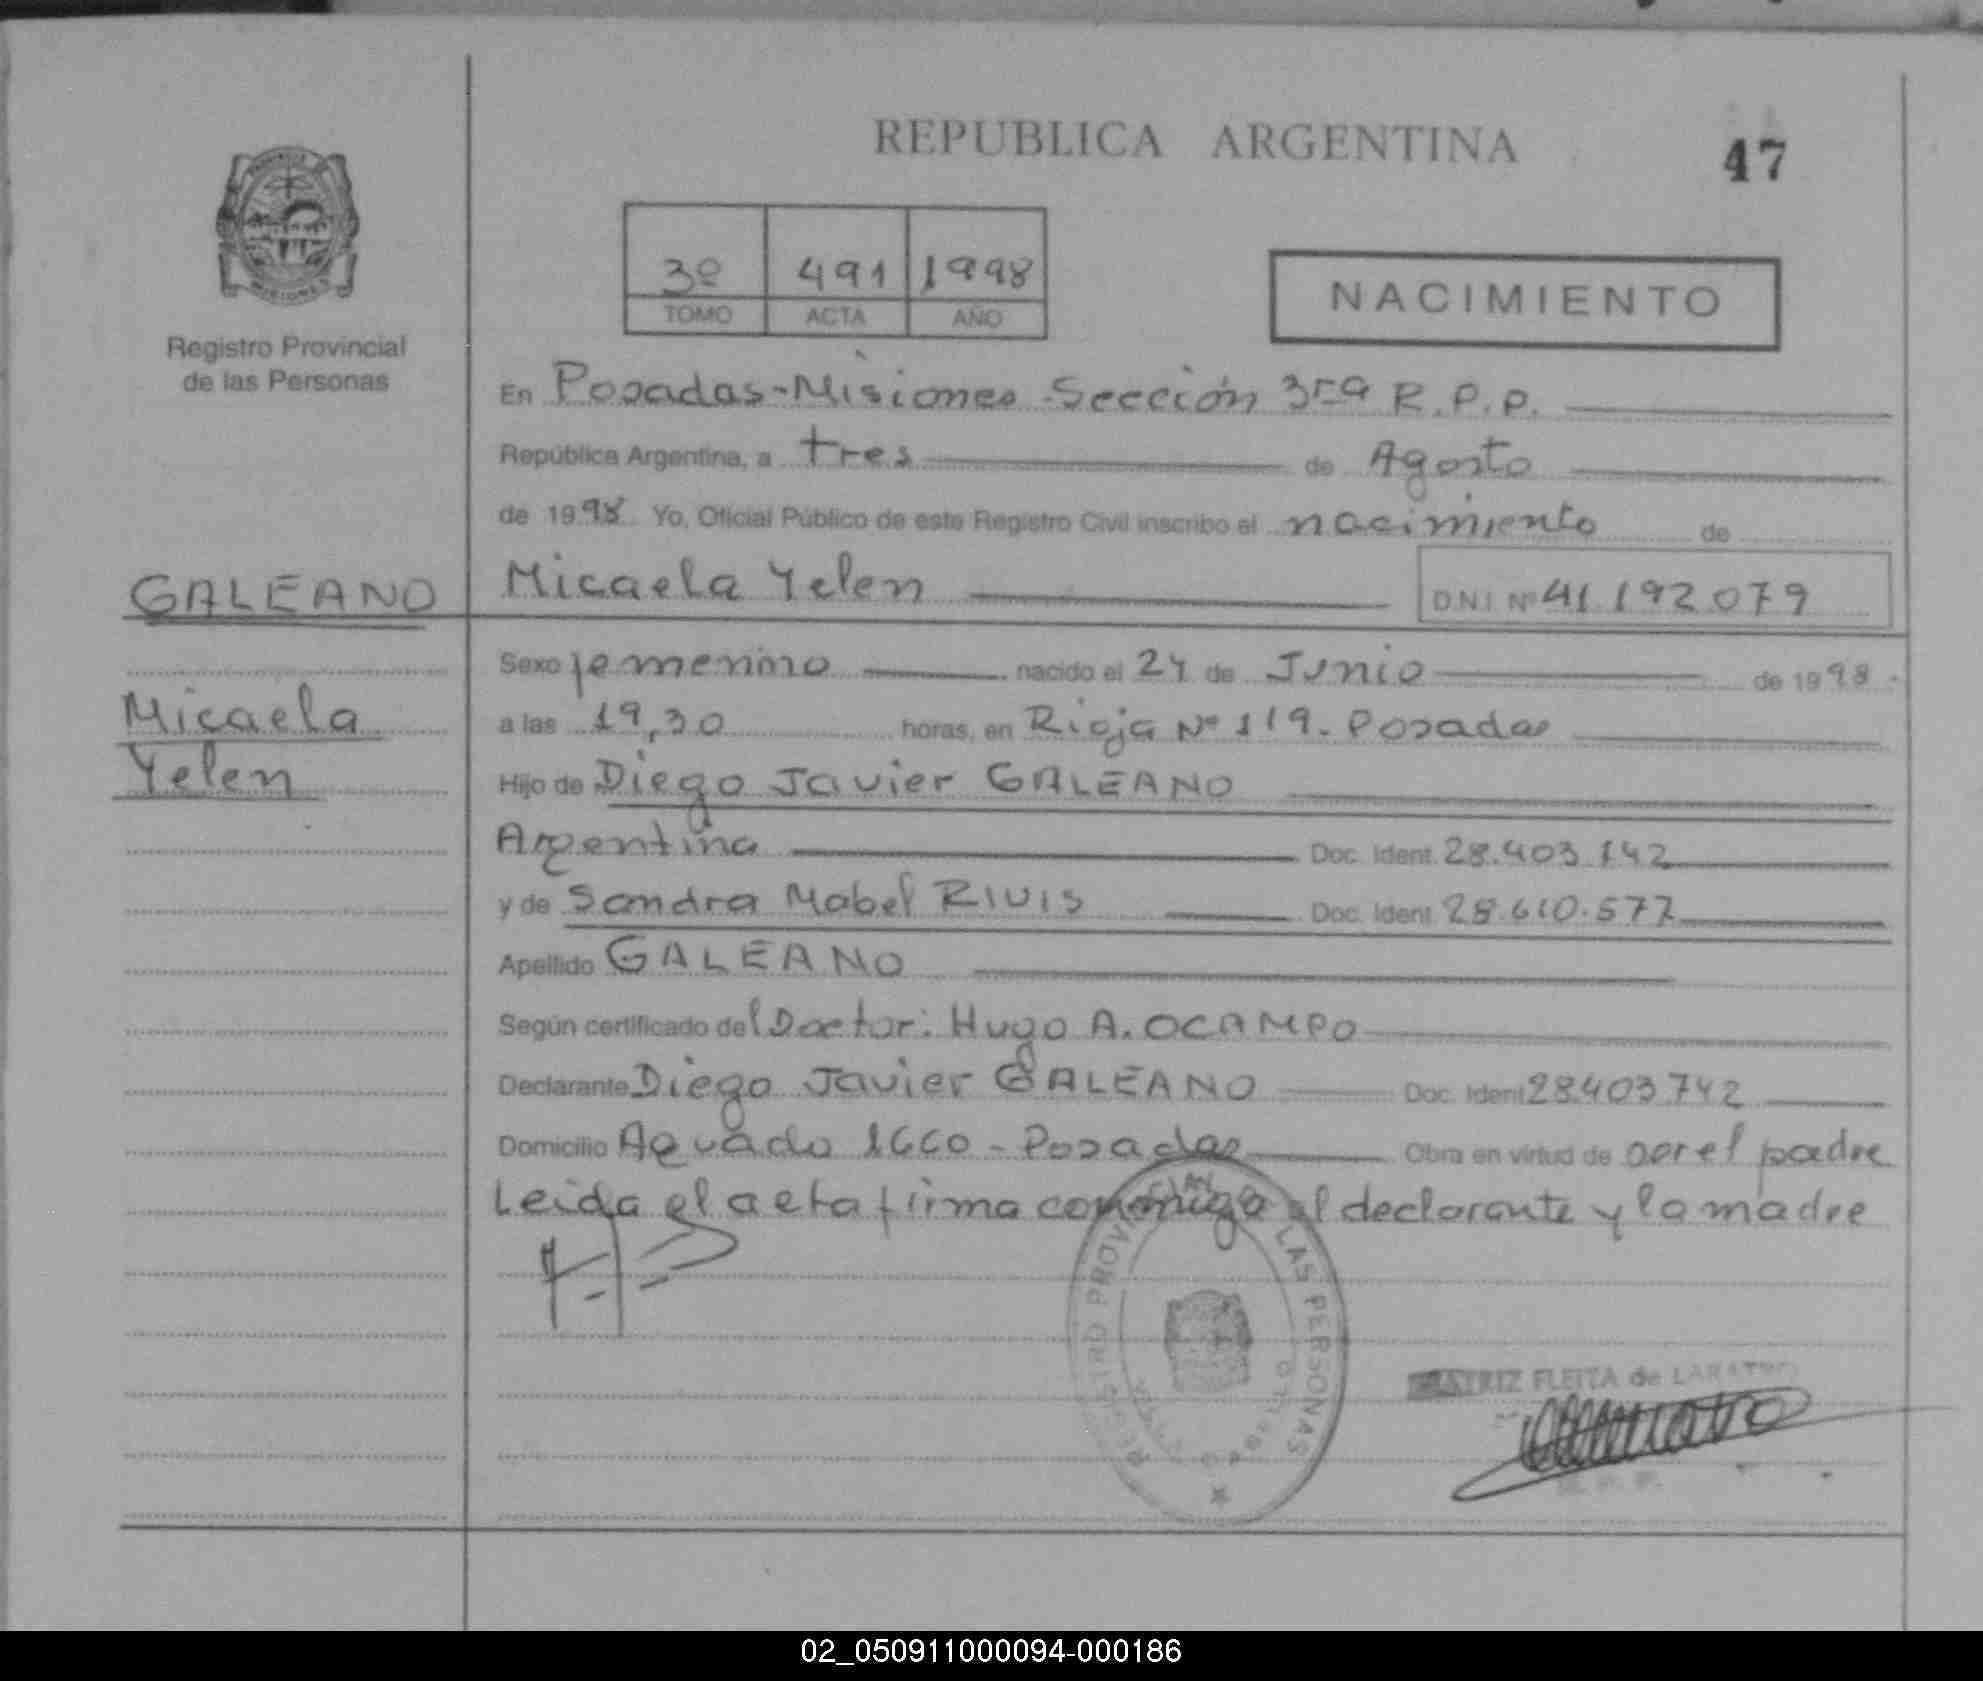 REPUBLICA ARGENTINA
47
3º 491 1998
TOMO ACTA AÑO
NACIMIENTO
PROVINCIA
MISIONES
Registro Provincial
de las Personas
En Posadas-Misiones-Sección 3ra R.P.P.
República Argentina, a tres de Agosto
de 1998 Yo, Oficial Público de este Registro Civil inscribo el nacimiento de
GALEANO
Micaela Yelen D.N.I. Nº 41.192.079
Micaela
Yelen
Sexo femenino nacido el 24 de Junio de 1998
a las 19,30 horas, en Rioja Nº 119- Posadas
Hijo de Diego Javier GALEANO
Argentina Doc. Ident. 28.403.142
y de Sandra Mabel RIVIS Doc. Ident. 28.610.577
Apellido GALEANO
Según certificado del Doctor: Hugo A. OCAMPO
Declarante Diego Javier GALEANO Doc. Ident 28403742
Domicilio Aguado 1660 - Posadas Obra en virtud de ser el padre
Leida el acta firma conmigo el declarante y la madre
REGISTRO PROVINCIAL LAS PERSONAS
FLEITA de
02_050911000094-000186